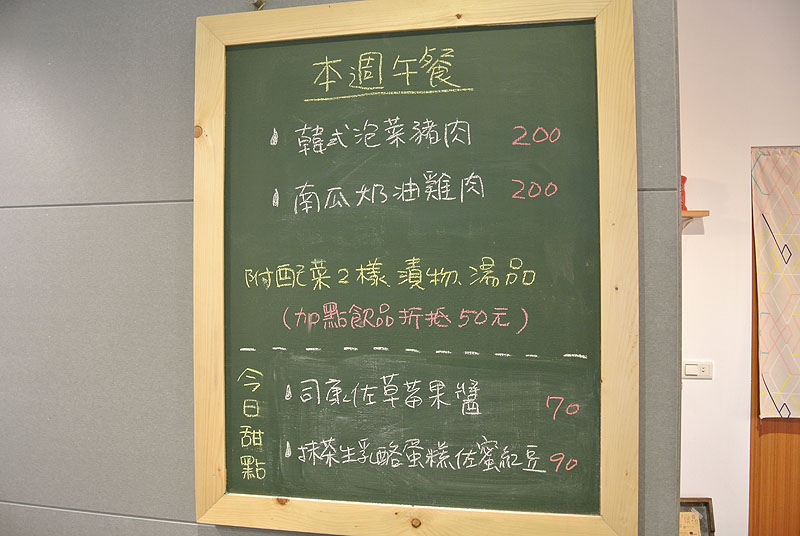 本週午餐
韓式泡菜豬肉 200
南瓜奶油雞肉 200
附配菜2樣、漬物、湯品
(加點飲品折抵50元)
今日甜點
司康佐草莓果醬 70
抹茶生乳酪蛋糕佐蜜紅豆 90